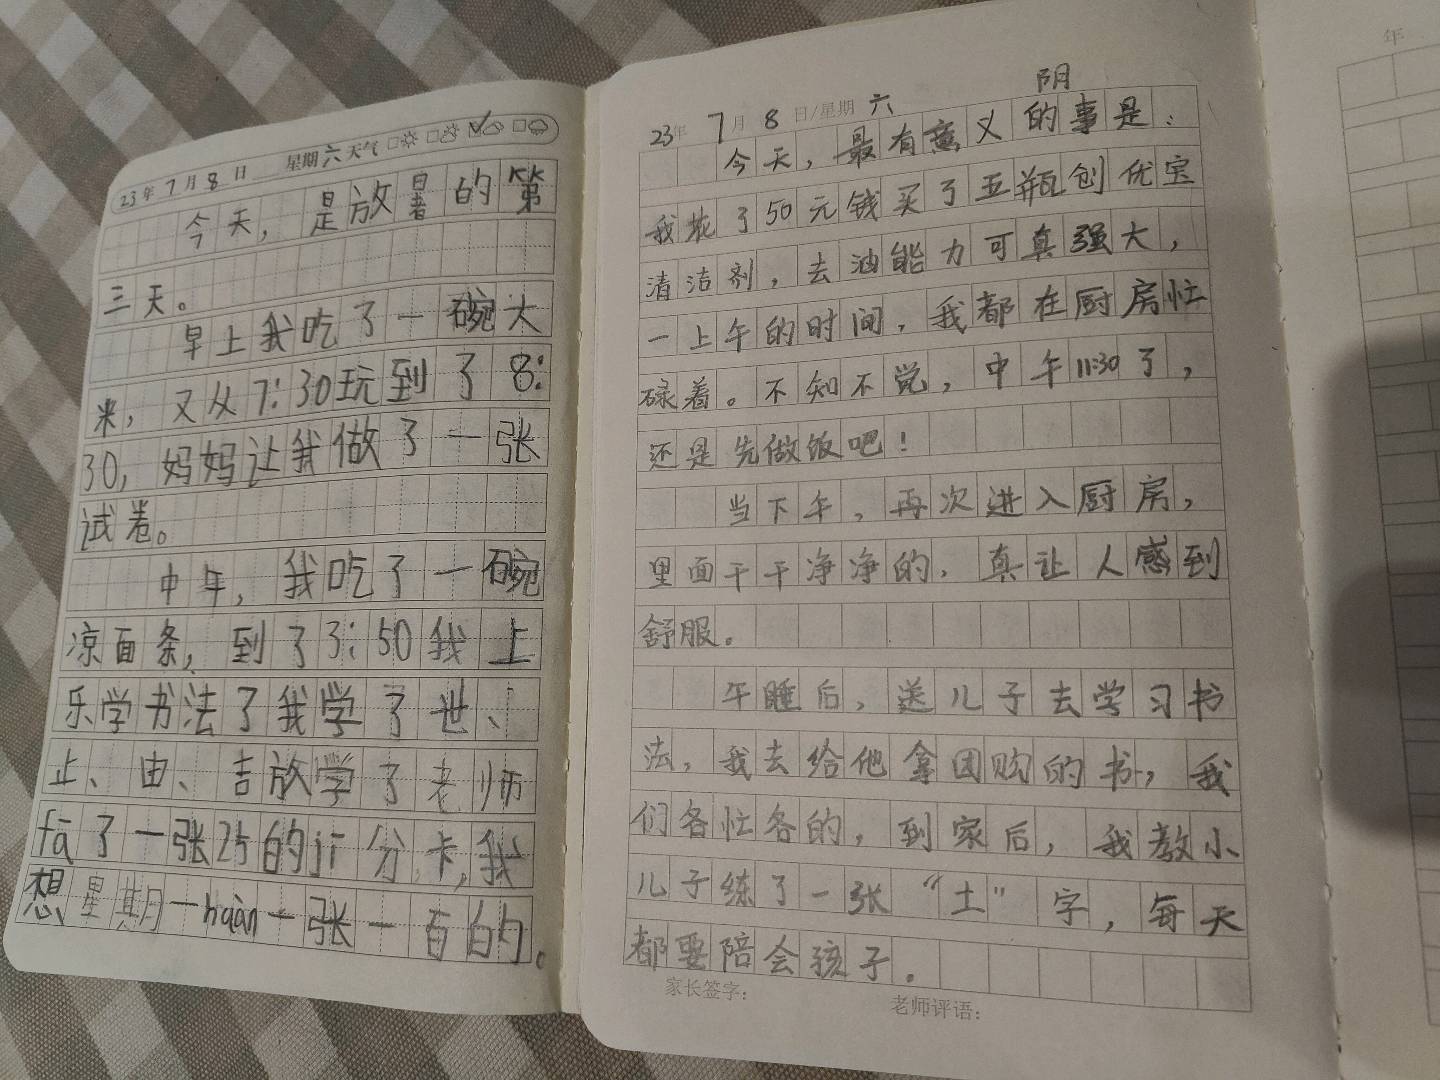 23年 7月 8日 星期六 天气
今天，是放暑的第
三天。
早上我吃了一碗大
米，又从7:30玩到了8:
30，妈妈让我做了一张
试卷。
中年，我吃了一碗
凉面条，到了3:50我上
乐学书法了我学了世、
止、由、吉放学了老师
fā了一张25的jī分卡，我
想星期一huàn一张一百的。
23年 7月 8日/星期 六 阴
今天，最有意义的事是：
我花了50元钱买了五瓶创优宝
清洁剂，去油能力可真强大，
一上午的时间，我都在厨房忙
碌着。不知不觉，中午11:30了，
还是先做饭吧！
当下午，再次进入厨房，
里面干干净净的，真让人感到
舒服。
午睡后，送儿子去学习书
法，我去给他拿团购的书，我
们各忙各的，到家后，我教小
儿子练了一张“土”字，每天
都要陪会孩子。
家长签字：
老师评语：
年